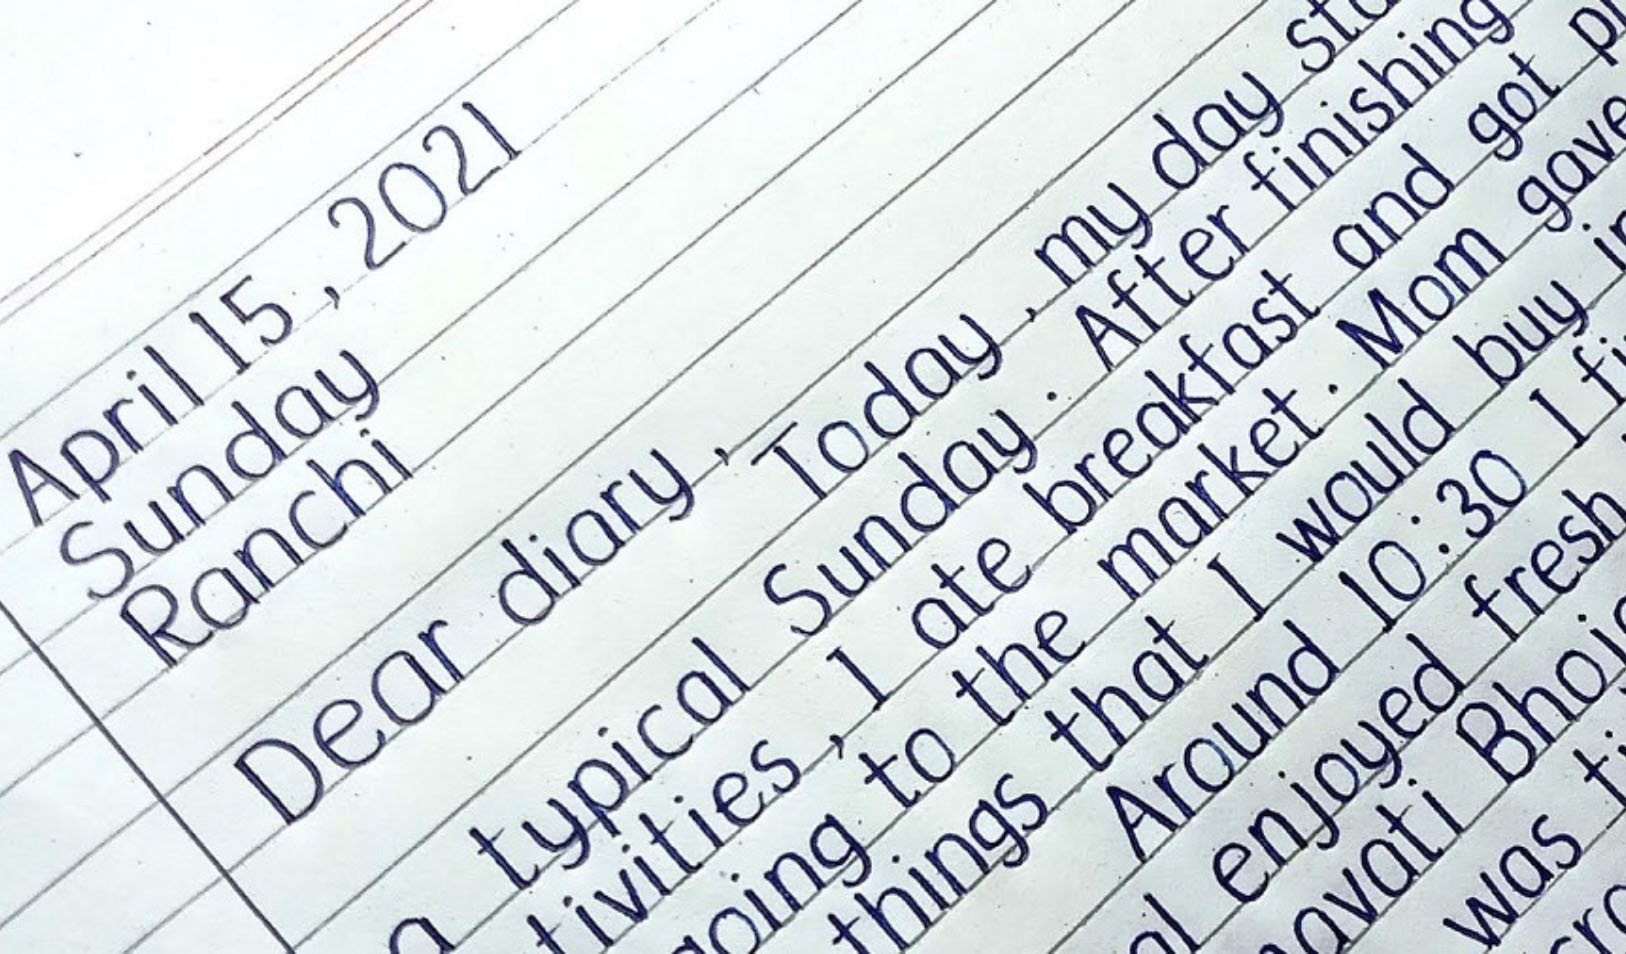 April 15, 2021
Sunday
Ranchi
Dear diary,
Today, my day
a typical Sunday. After finishing
I ate breakfast and got
going to the market. Mom gave
things that I would buy
Around 10:30 I
enjoyed fresh
was